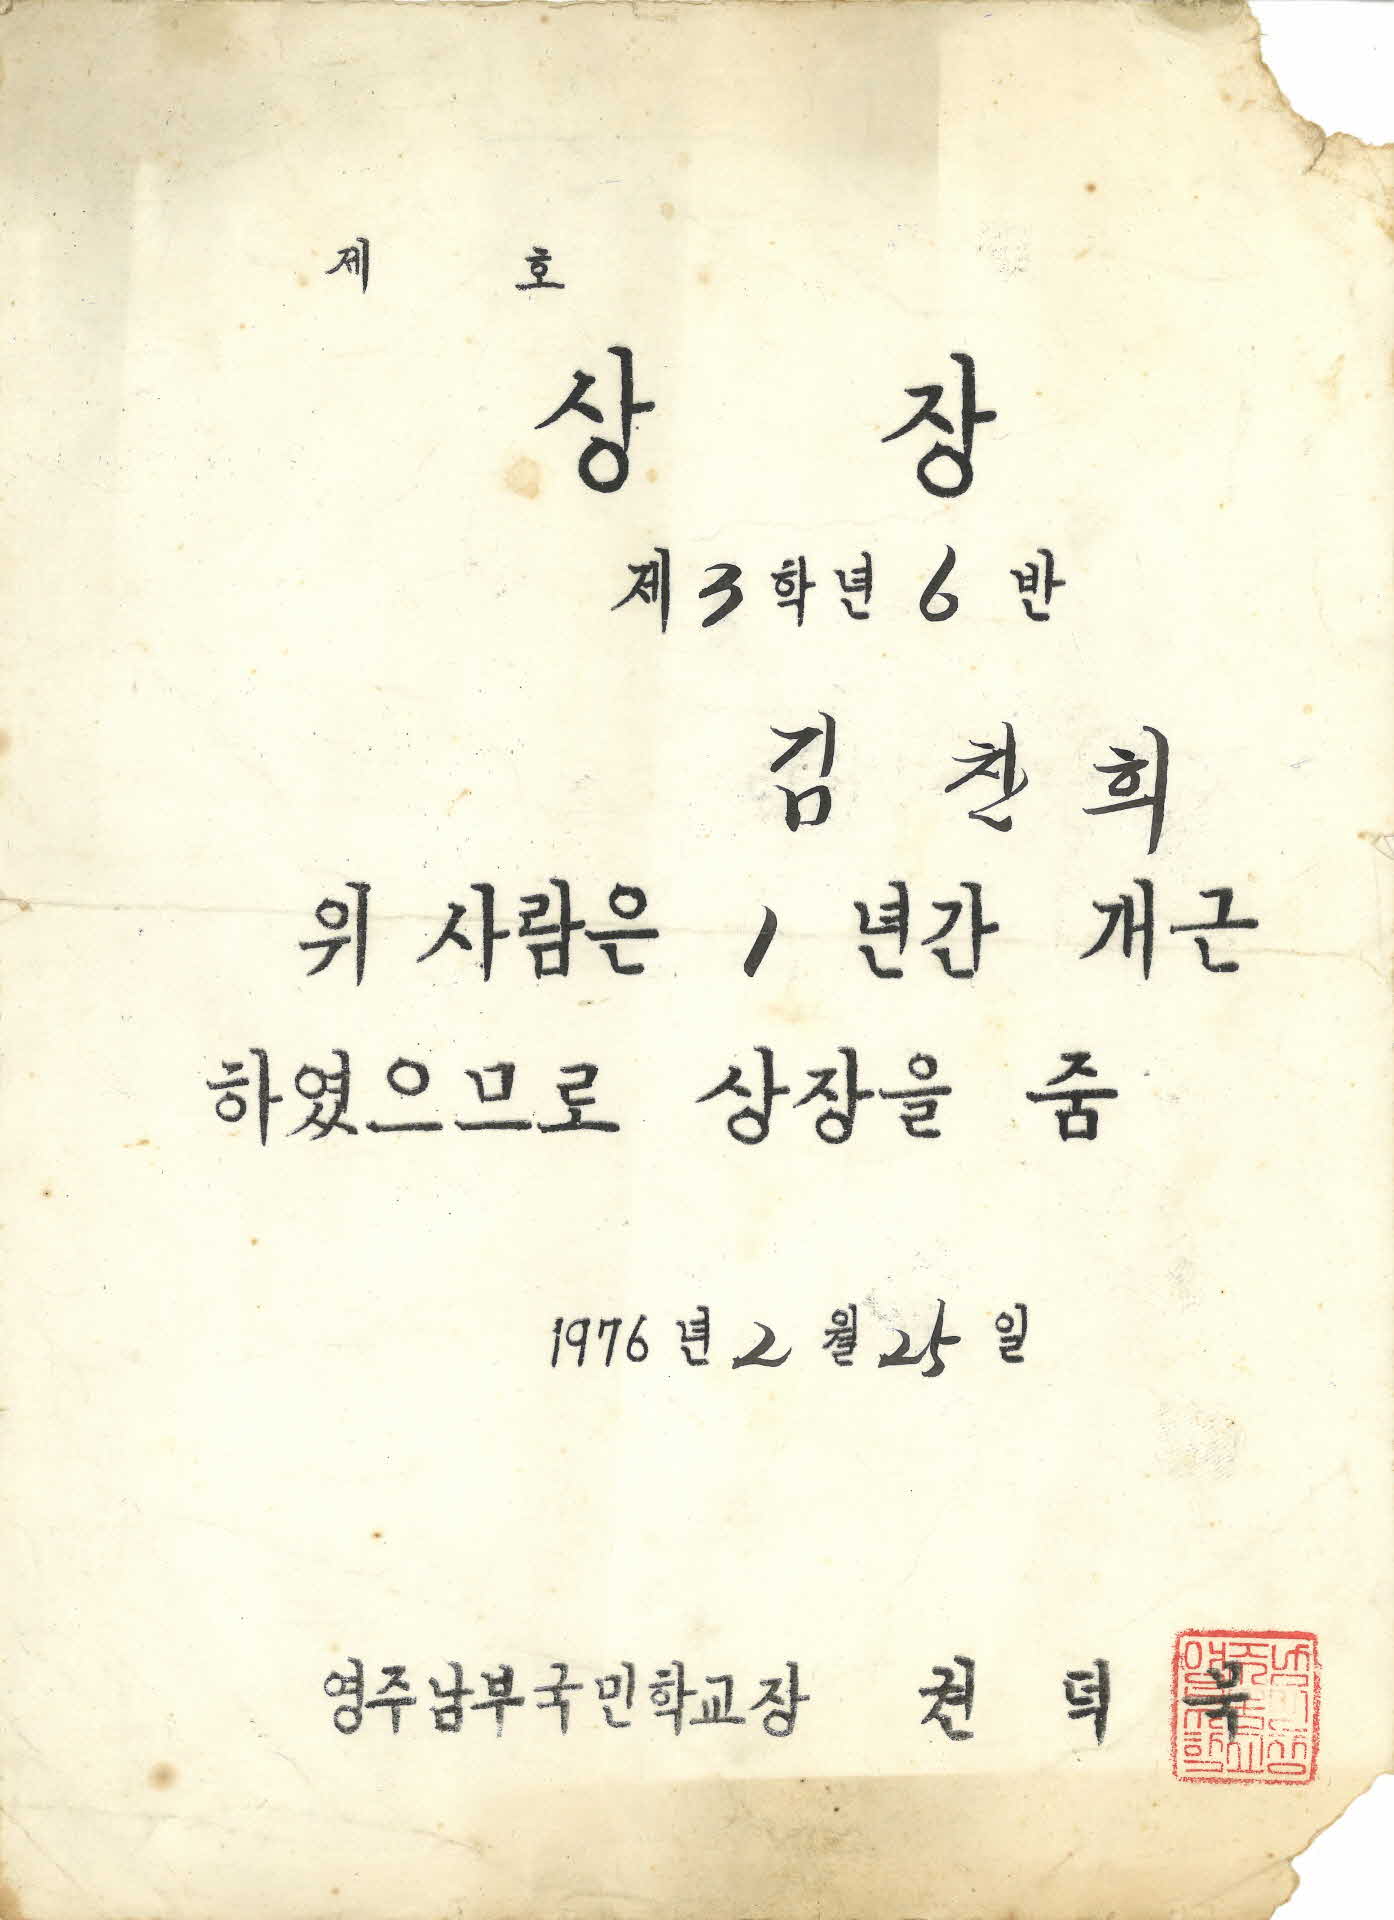 제 호
상 장
제 3 학년 6 반
김 찬 희
위 사람은 1 년간 개근
하였으므로 상장을 줌
1976 년 2 월 25 일
영주남부국민학교장 권 덕